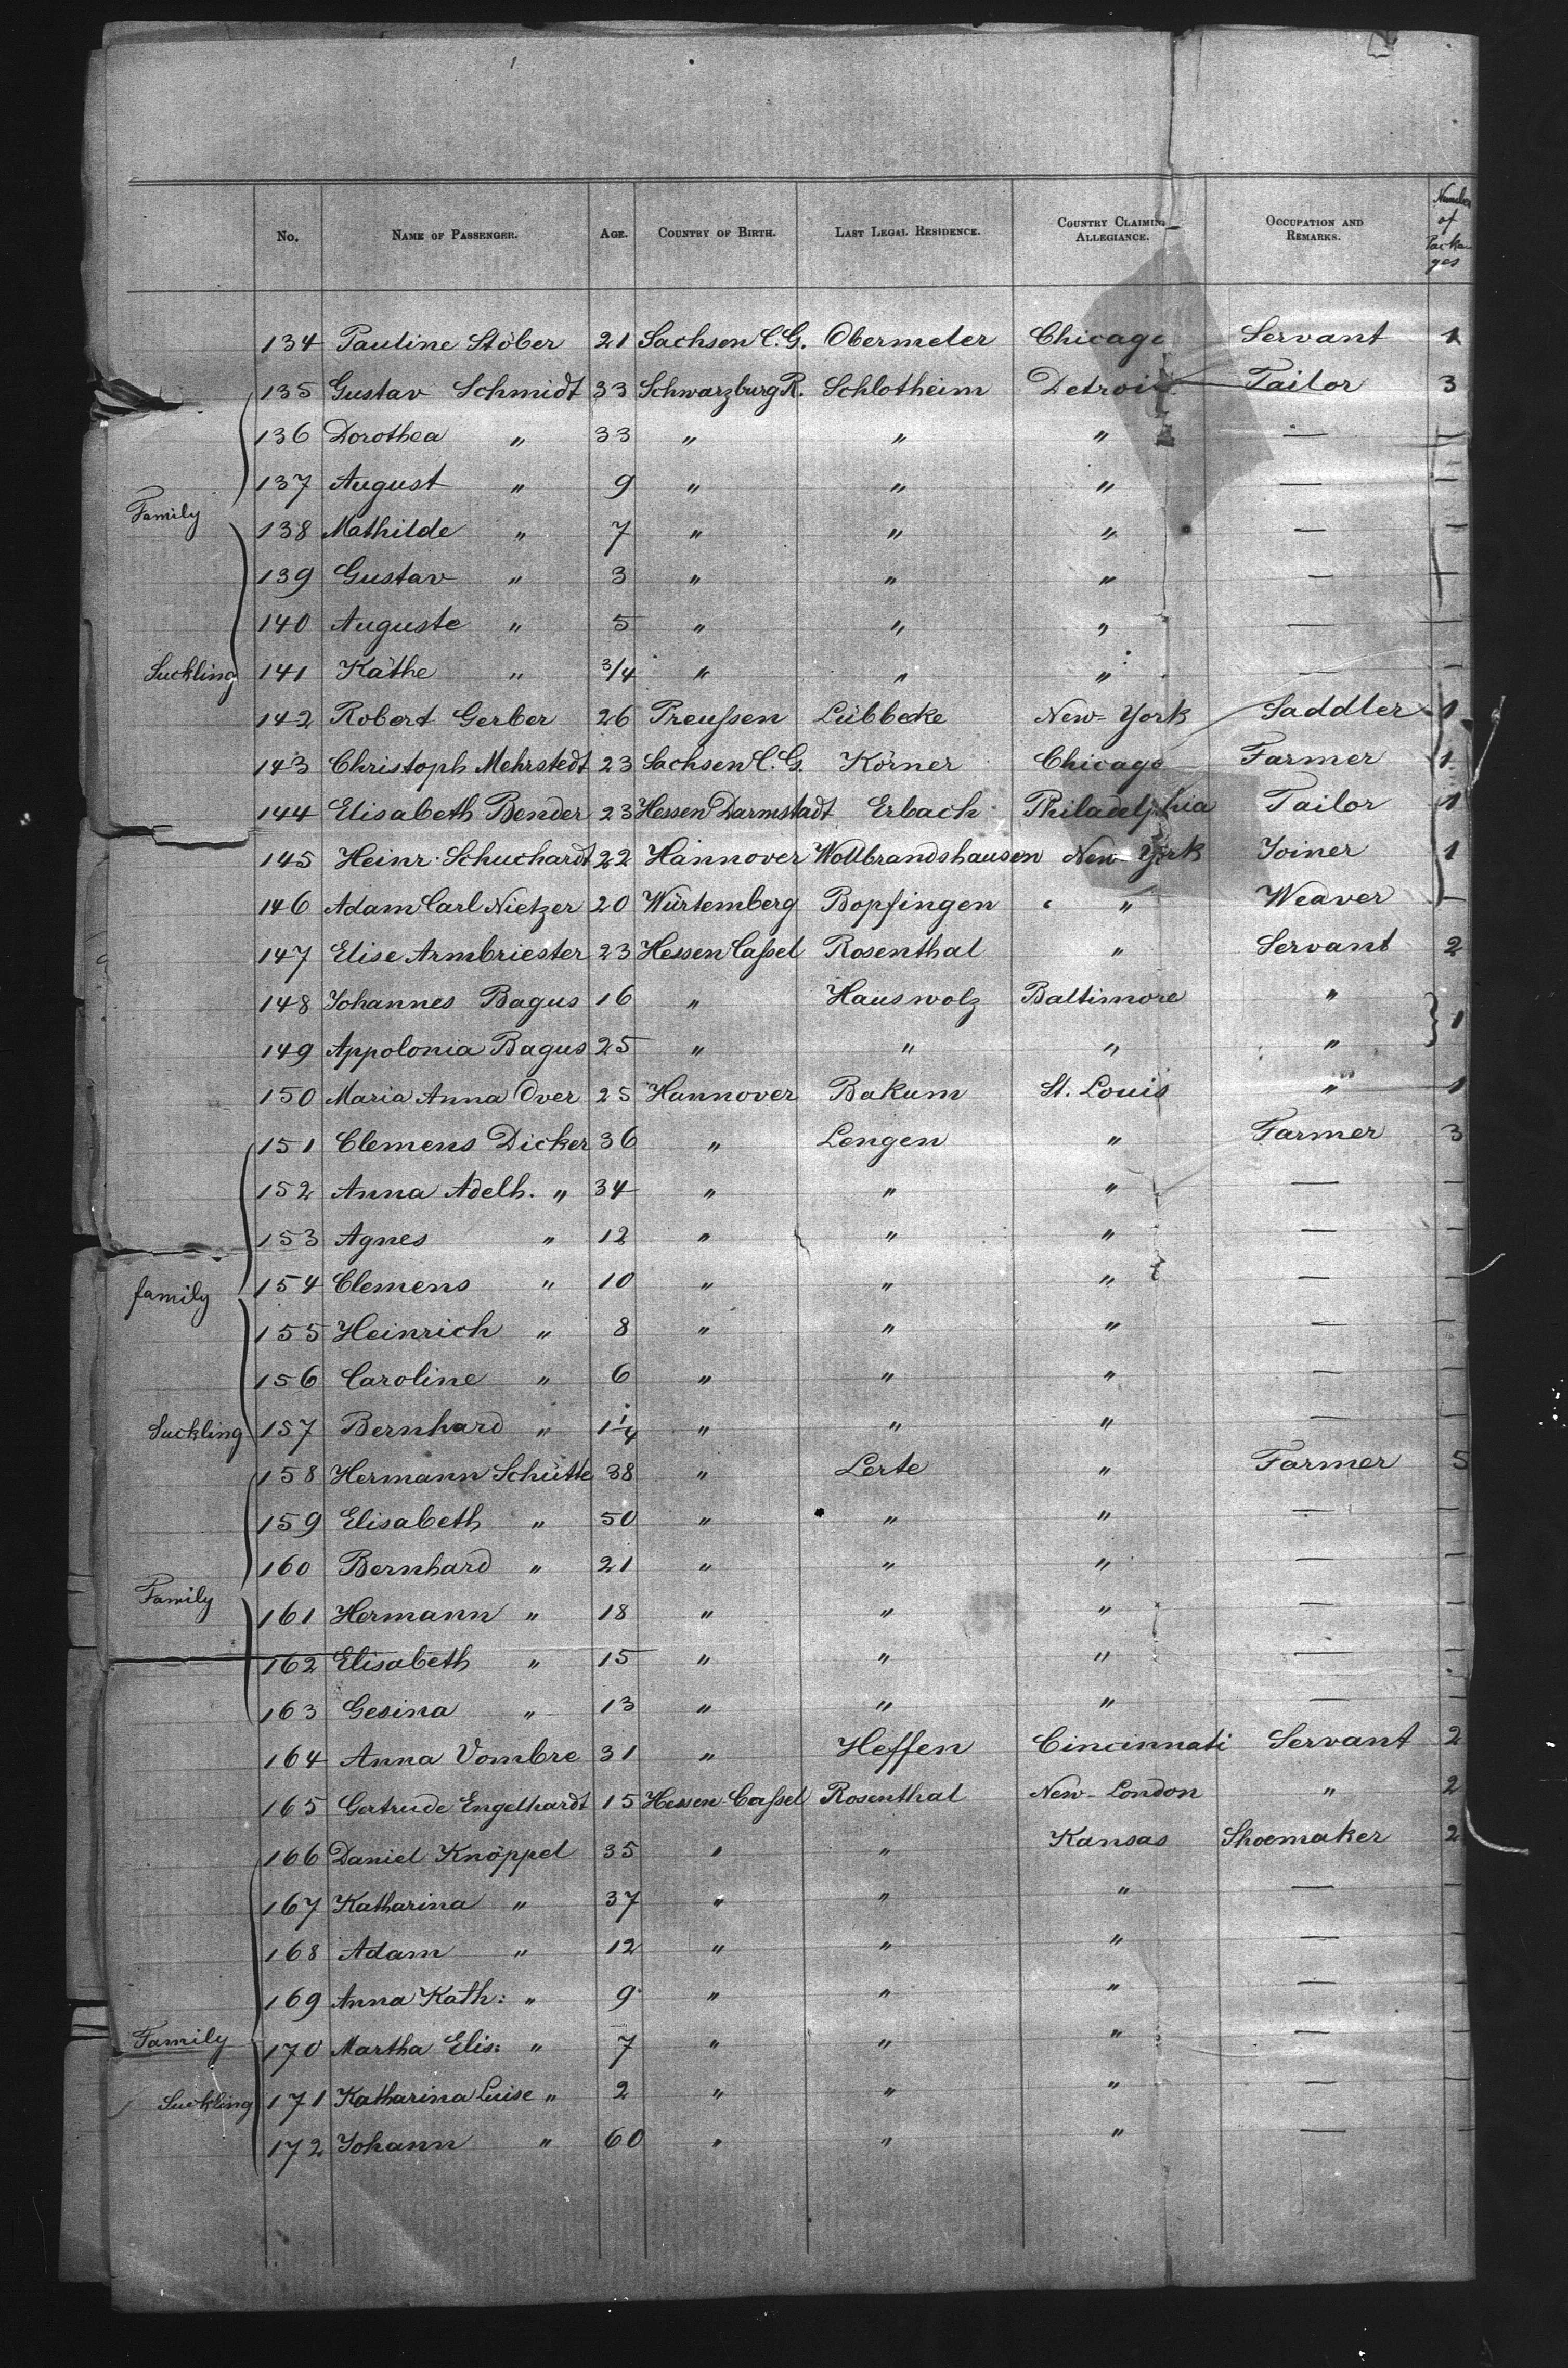 No. NAME OF PASSENGER. AGE. COUNTRY OF BIRTH. LAST LEGAL RESIDENCE. COUNTRY CLAIMING ALLEGIANCE. OCCUPATION AND REMARKS. Number of Packages
134 Pauline Stöber 21 Sachsen C. G. Obermeler Chicago Servant 1
135 Gustav Schmidt 33 Schwarzburg R. Schlotheim Detroit Tailor 3
136 Dorothea " 33 " " " — —
137 August " 9 " " " — —
Family
138 Mathilde " 7 " " " — —
139 Gustav " 3 " " " — —
140 Auguste " 5 " " " — —
Suckling 141 Käthe " 3/4 " " " — —
142 Robert Gerber 26 Preußen Lübbecke New-York Saddler 1
143 Christoph Mehrstedt 23 Sachsen C. G. Körner Chicago Farmer 1
144 Elisabeth Bender 23 Hessen Darmstadt Erbach Philadelphia Tailor 1
145 Heinr. Schuchardt 22 Hannover Wollbrandshausen New-York Joiner 1
146 Adam Carl Nietzer 20 Würtemberg Bopfingen " Weaver —
147 Elise Armbriester 23 Hessen Caßel Rosenthal " Servant 2
148 Johannes Bagus 16 " Hauswolz Baltimore " } 1
149 Appolonia Bagus 25 " " " "
150 Maria Anna Over 25 Hannover Bakum St. Louis " 1
151 Clemens Dicker 36 " Lengen " Farmer 3
152 Anna Adelh. " 34 " " " — —
153 Agnes " 12 " " " — —
family 154 Clemens " 10 " " " — —
155 Heinrich " 8 " " " — —
156 Caroline " 6 " " " — —
Suckling 157 Bernhard " 1 1/4 " " " — —
158 Hermann Schütte 38 " Lerte " Farmer 5
159 Elisabeth " 50 " " " — —
160 Bernhard " 21 " " " — —
Family
161 Hermann " 18 " " " — —
162 Elisabeth " 15 " " " — —
163 Gesina " 13 " " " — —
164 Anna Vombre 31 " Heffen Cincinnati Servant 2
165 Gertrude Engelhardt 15 Hessen-Caßel Rosenthal New-London " 2
166 Daniel Knöppel 35 " " Kansas Shoemaker 2
167 Katharina " 37 " " " — —
168 Adam " 12 " " " — —
169 Anna Kath: " 9 " " " — —
Family 170 Martha Elis: " 7 " " " — —
Suckling 171 Katharina Luise " 2 " " " — —
172 Johann " 60 " " " — —